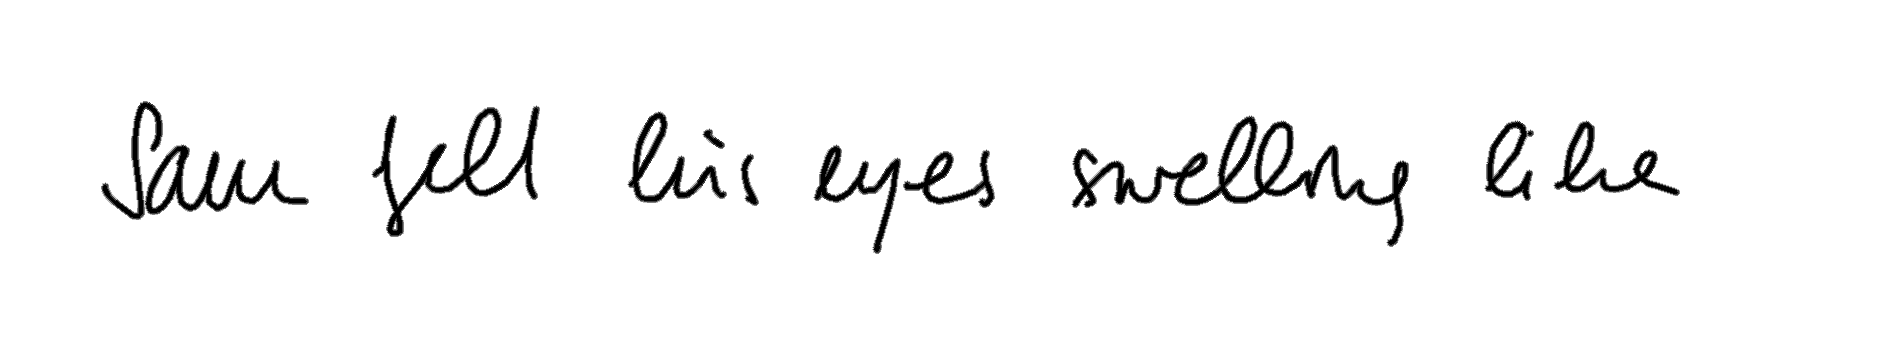 Sam felt his eyes swelling like